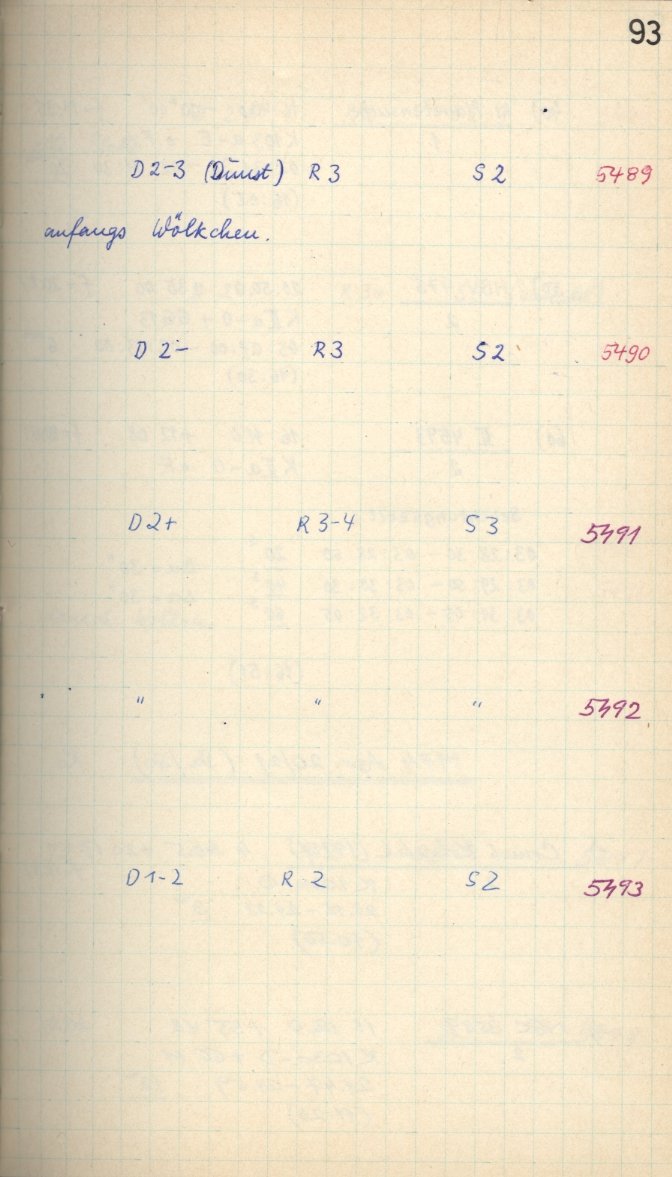 93
D2-3 (Dunst) R3 S2 5489
anfangs Wölkchen.
D2- R3 S2 5490
D2+ R3-4 S3 5491
" " " 5492
D1-2 R2 S2 5493